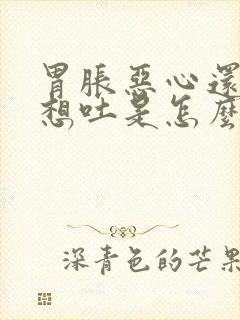 胃脹惡心還
想吐是怎麼
深青色的芒果